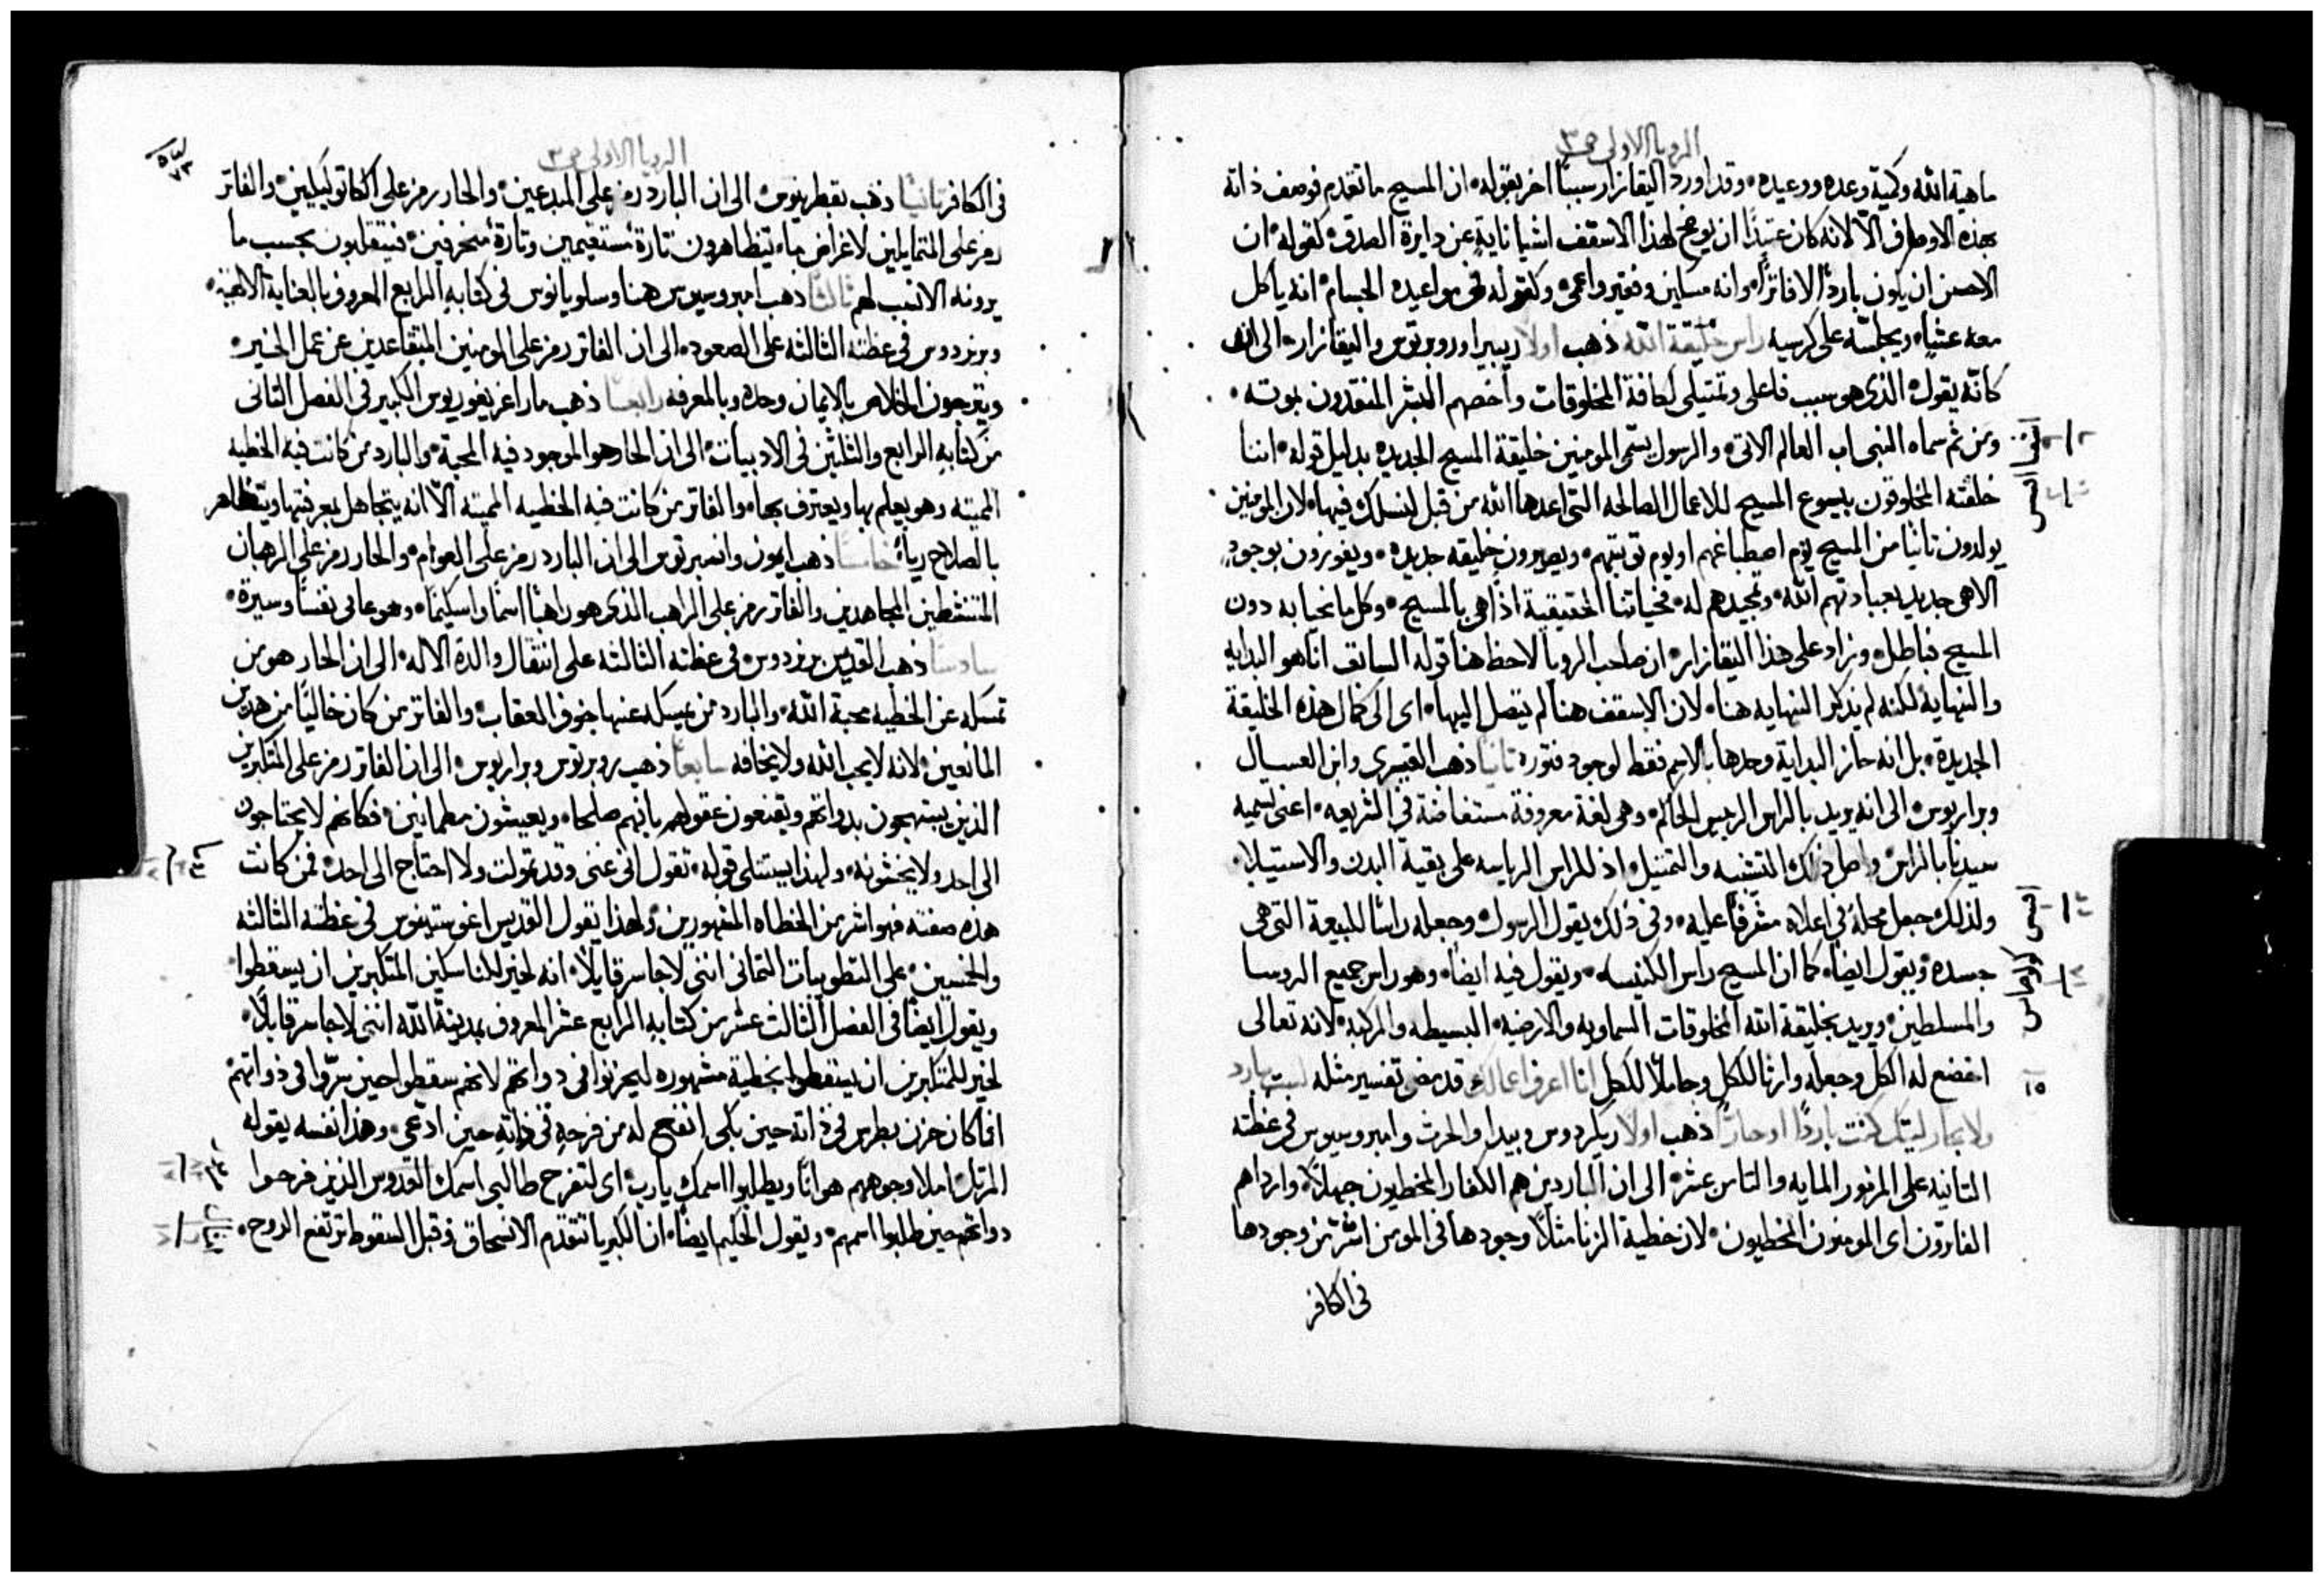 الرويا الاولى ص ٣
ماهية الله وكمية وعده ووعيده وقد اورد اليقازار سببًا اخر بقوله ان المسيح ما تقدم فوصف ذاته
بهذه الاوصاف الا لانه كان عتيدًا ان يوبخ لهذا الاسقف اشيا نايية عن دايرة الصدق كقوله ان
الاحسن ان يكون باردًا لا فاترًا وانه مسكين وفقير واعمى وكقوله في مواعيده الجسام انه ياكل
معه عشيًا ويجلسه على كرسيه راس خليقة الله ذهب اولًا ريبيرا وروبرتوس واليقازار الى انه
كانه يقول الذي هو سبب فاعلي وتمثيلي لكافة المخلوقات واخصهم البشر المنقدون بموته
ومن ثم سماه النبي اب العالم الاتي والرسول يسمى المومنين خليقة المسيح الجديده بدليل قوله اننا
خلقته المخلوقون بيسوع المسيح للاعمال الصالحه التي اعدها الله من قبل لنسلك فيها لان المومنين
يولدون ثانيًا من المسيح يوم اصطباغهم او يوم توبتهم ويصيرون خليقه جديده ويفوزون بوجود
الاهي جديد بعبادتهم الله وتمجيدهم له فحياتنا الحقيقية اذًا هي بالمسيح وكل ما نحيا به دون
المسيح فباطل وزاد على هذا اليقازار ان صاحب الرويا لاحظ هنا قوله السابق انا هو البدايه
والنهاية لكنه لم يذكر النهايه هنا لان الاسقف هنا لم يتصل اليها اي الى كمال هذه الخليقة
الجديدة بل انه حاز البداية وحدها بالاسم فقط لوجود فتوره ثانيًا ذهب القيصري وابن العسال
وبراريوس الى انه يريد بالراس الرييس الحاكم وهي لغة معروفة مستفاضة في الشريعه اعني تسميه
سيدنا بالراس واصل ذلك التشبيه والتمثيل اذ للراس الرياسه على بقية البدن والاستيلا
ولذلك جعل محله في اعلاه مشرفًا عليه وفي ذلك يقول الرسول وجعله راسًا للبيعة التي هي
جسده ويقول ايضًا كما ان المسيح راس الكنيسه ويقول فيه ايضًا وهو راس جميع الروسا
والمسلطين ويريد بخليقة الله المخلوقات السماويه والارضيه البسيطه والمركبه لانه تعالى
اخضع له الكل وجعله وارثا للكل وحاملًا للكل انا اعرف اعمالك قد مضى تفسير مثله لست بارد
ولا بحار ليتك كنت باردًا او حارًا ذهب اولًا ريكردوس وبيدا والحرث وامبروسيوس في عظته
الثانيه على المزمور المايه والثامن عشر الى ان الباردين هم الكفار المخطيون جهلًا وارداهم
الفاترون اي المومنون المخطيون لان خطية الزنا مثلًا وجودها في المومن اشر من وجودها
في الكافر
الرويا الاولى ص ٣
في الكافر ثانيًا ذهب بقطرينوس الى ان البارد رمز على المبدعين والحار رمز على الكاتوليكيين والفاتر
رمز على المتمايلين لاغراض ما يتظاهرون تارة مستقيمين وتارة منحرفين فيتقلبون بحسب ما
يرونه الانسب لهم ثالثًا ذهب امبروسيوس هنا وسلويانوس في كتابه الرابع المعروف بالعناية الالهية
وبرنردوس في عظته الثالثه على الصعود الى ان الفاتر رمز على المومنين المتقاعدين عن عمل الخير
ويترجون الخلاص بالايمان وحده وبالمعرفه رابعًا ذهب مار اغريغوريوس الكبير في الفصل الثاني
من كتابه الرابع والثلثين في الادبيات الى ان الحار هو الموجود فيه المحبة والبارد من كانت فيه الخطيه
المميته وهو يعلم بها ويعترف بها والفاتر من كانت فيه الخطيه المميته الا انه يتجاهل بمعرفتها ويتظاهر
بالصلاح رياءً خامسًا ذهب ايمون وانسبرتوس الى ان البارد رمز على العوام والحار رمز على الرهبان
المتنشطين المجاهدين والفاتر رمز على الراهب الذي هو راهبًا اسمًا واسكيمًا وهو عامي نفسًا وسيرة
سادسًا ذهب القديس برنردوس في عظته الثالثه على انتقال والدة الاله الى ان الحار هو من
تمسكه عن الخطيه محبة الله والبارد من يمسكه عنها خوف العقاب والفاتر من كان خاليًا من هذين
المانعين لانه لا يحب الله ولا يخافه سابعًا ذهب روبرتوس وبراريوس الى ان الفاتر رمز على المتكبرين
الذين يبتهجون بذواتهم ويقنعون عقولهم بانهم صلحا ويعيشون مطمانين فكانهم لا يحتاجون
الى احد ولا يخشونه ولهذا يستتلى قوله تقول اني غني وقد تمولت ولا احتاج الى احد فمن كانت
هذه صفته فهو اشر من الخطاه المشهورين ولهذا يقول القديس اغوستينوس في عظته الثالثه
والخمسين على التطوبيات الثماني انني لاجاسر قايلًا انه لخير للناسكين المتكبرين ان يسقطوا
ويقول ايضًا في الفصل الثالث عشر من كتابه الرابع عشر المعروف بمدينة الله انني لاجاسر قايلًا
لخير للمتكبرين ان يسقطوا بخطية مشهوره ليحزنوا في ذواتهم لانهم سقطوا حين سرّوا في ذواتهم
افما كان حزن بطرس في ذاته حين بكى انفع له من فرحه في ذاته حين ادعى وهذا نفسه يقوله
المرتل املا وجوههم هوانًا ويطلبوا اسمك يا رب اي لتفرح طالبي اسمك القدوس الذين فرحوا
ذواتهم حين طلبوا اسمهم ويقول الحكيم ايضًا ان الكبريا تتقدم الانسحاق وقبل السقوط ترتفع الروح